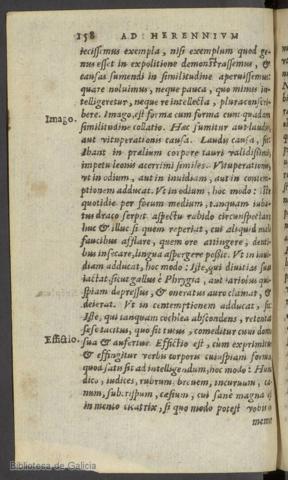 158 AD HERENNIVM
iecissemus exempla, nisi exemplum quod ge-
nus esset in expolitione demonstrassemus, &
causas sumendi in similitudine aperuissemus:
quare noluimus, neque pauca, quo minus in-
telligeretur, neque re intellecta, plura conscri-
bere. Imago, est forma cum forma cum quadam
Imago.
similitudine collatio. Hæc sumitur aut laudis,
aut vituperationis causa. Laudis causa, sic:
Ibant in prælium corpore tauri validissimi,
impetu leonis acerrimi similes. Vituperationis,
vt in odium, aut in inuidiam, aut in contem-
ptionem adducat. Vt in odium, hoc modo: Iste
quotidie per forum medium, tanquam iuba-
tus draco serpit aspectu rabido circunspectans
huc & illuc si quem reperiat, cui aliquid mali
faucibus afflare, quem ore attingere, denti-
bus insecare, lingua aspergere possit. Vt in inui-
diam adducat, hoc modo: Iste, qui diuitias suas
iactat, sicut gallus è Phrygia, aut ariolus qui-
spiam depressus, & oneratus auro clamat, &
deierat. Vt in contemptionem adducat, sic:
Iste, qui tanquam cochlea abscondens, retentat
sese tacitus, quo sit tutus, comeditur cum domo
sua & aufertur. Effictio est, cùm exprimitur
Effictio.
& effingitur verbis corporis cuiuspiam forma,
quod satis sit ad intelligendum, hoc modo: Hunc
dico, iudices, rubrum, breuem, incuruum, ca-
num, subcrispum, cæsium, cui sanè magna est
in mento cicatrix, si quo modo potest vobis in
memo
Biblioteca de Galicia